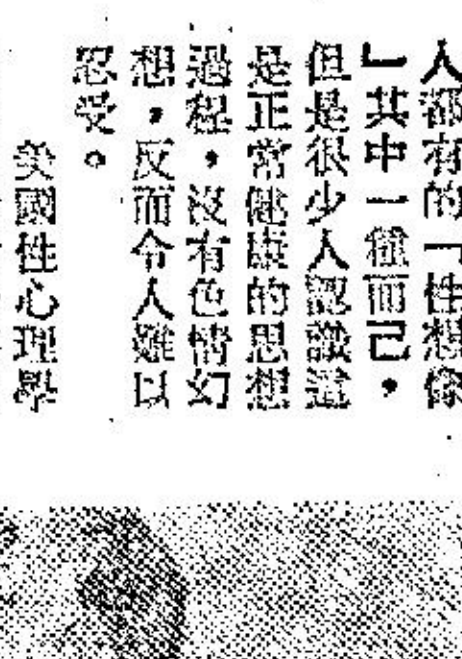 人都有的「性想像
」其中一種而己，
但是很少人認識這
是正常健康的思想
過程，沒有色情幻
想，反而令人難以
忍受。
美國性心理學